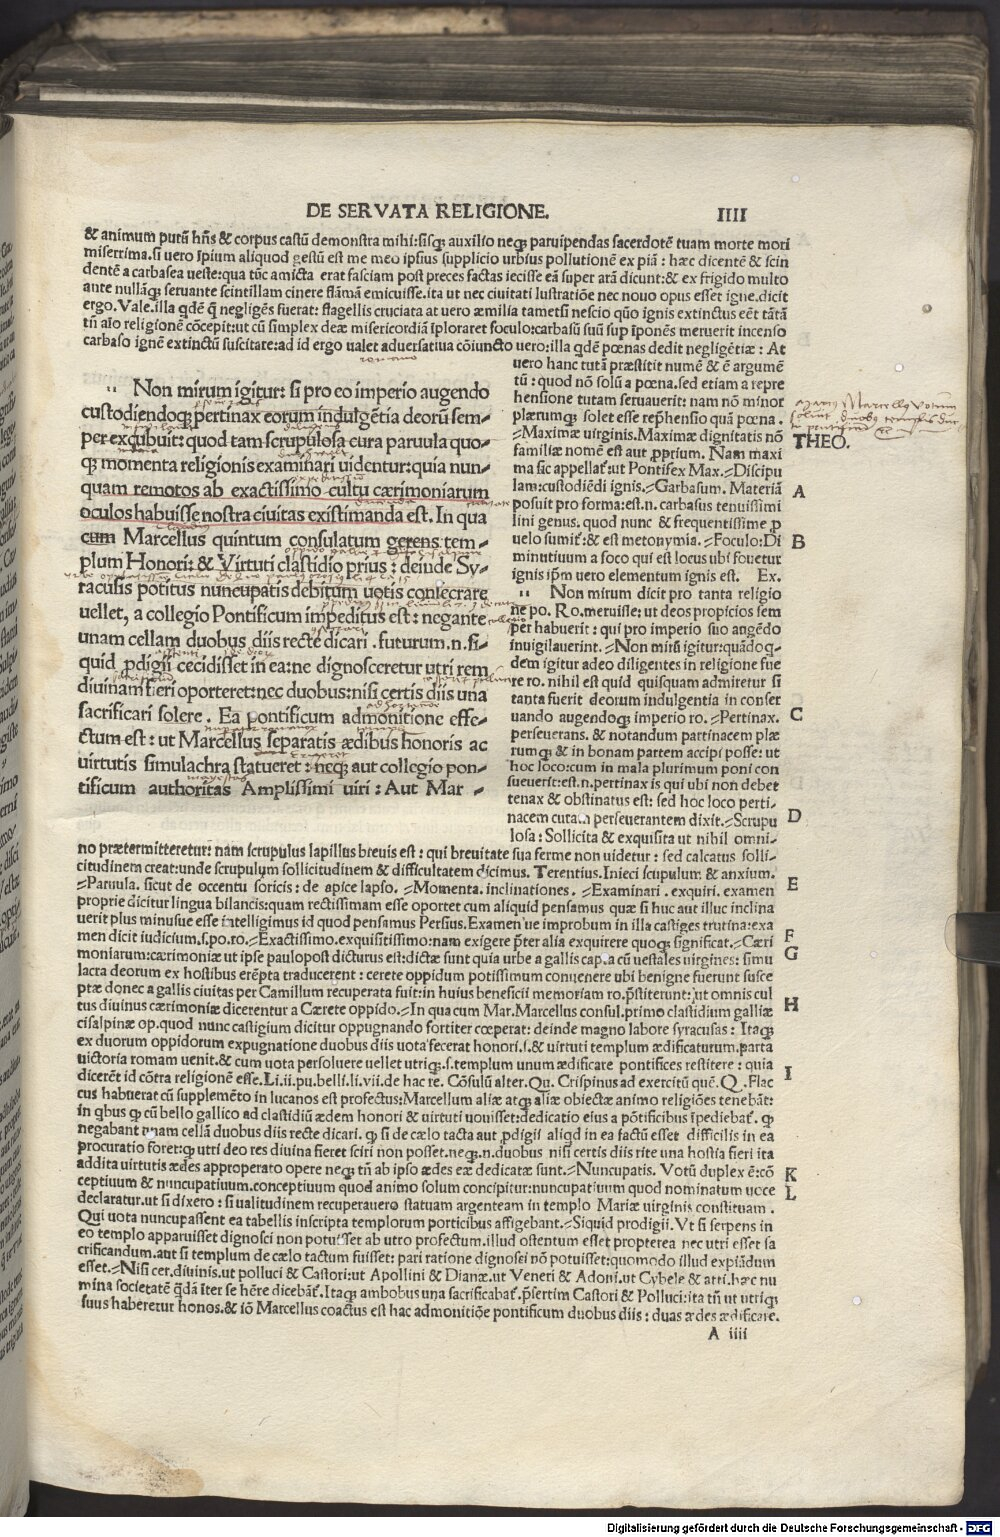 DE SERVATA RELIGIONE.
IIII
& animum putū hñs & corpus castū demonstra mihi:sisq; auxilio neq; paruipendas sacerdotē tuam morte mori
miserrima.si vero ipium aliquod gestū est me meo ipsius supplicio urbius pollutionē ex piā : hæc dicentē & scin
dentē a carbasea ueste:qua tūc amicta erat fasciam post preces factas iecisse eā super arā dicunt:& ex frigido multo
ante nullāq; seruante scintillam cinere flāmā emicuisse.ita ut nec ciuitati lustratiōe nec nouo opus esset igne.dicit
ergo.Vale.illa qdē q negligēs fuerat: flagellis cruciata at uero æmilia tametsi nescio quo ignis extinctus eēt tātā
tñ aīo religionē cōcepit:ut cū simplex deæ misericordiā iploraret foculo:carbasū suū sup īponēs meruerit incenso
carbaso ignē extinctū suscitare:ad id ergo ualet aduersatiua cōiuncto uero:illa qdē pœnas dedit negligētiæ : At
Non mirum igitur: si pro eo imperio augendo
custodiendoq; pertinax eorum indulgētia deorū sem-
per excubuit: quod tam scrupulosa cura paruula quo-
q; momenta religionis examinari uidentur:quia nun-
quam remotos ab exactissimo cultu cærimoniarum
oculos habuisse nostra ciuitas existimanda est. In qua
cum Marcellus quintum consulatum gerens tem-
plum Honori: & Virtuti clastidio prius : deiude Sy-
racusis potitus nuncupatis debitum uotis consecrare
uellet, a collegio Pontificum impeditus est : negante
unam cellam duobus diis recte dicari . futurum.n.si-
quid pdigii cecidisset in ea:ne dignosceretur utri rem
diuinam fieri oporteret:nec duobus:nisi certis diis una
sacrificari solere . Ea pontificum admonitione effe-
ctum est : ut Marcellus separatis ædibus honoris ac
uirtutis simulachra statueret : neq; aut collegio pon-
tificum authoritas Amplissimi uiri : Aut Mar -
uero hanc tutā præstitit numē & ē argumē
tū : quod nō solū a pœna.sed etiam a repre
hensione tutam seruauerit: nam nō minor
plærumq; solet esse rephēsio quā pœna .
Maximæ uirginis. Maximæ dignitatis nō
familiæ nomē est aut pprium. Nam maxi
ma sic appellat: ut Pontifex Max. Discipu
lam:custodiēdi ignis. Garbasum. Materiā
posuit pro forma:est.n.carbasus tenuissimi
lini genus. quod nunc & frequentissime p
uelo sumit: & est metonymia. Foculo: Di
minutiuum a foco qui est locus ubi fouetur
ignis ipm uero elementum ignis est. Ex.
Non mirum dicit pro tanta religio
ne po. Ro.meruisse: ut deos propicios sem
per habuerit : qui pro imperio suo augēdo
inuigilauerint. Non mirū igitur:quādoq-
dem igitur adeo diligentes in religione fue
re ro. nihil est quid quisquam admiretur si
tanta fuerit deorum indulgentia in conser
uando augendoq; imperio ro. Pertinax.
perseuerans. & notandum partinacem plæ
rumq; & in bonam partem accipi posse: ut
hoc loco:cum in mala plurimum poni con
sueuerit:est.n.pertinax is qui ubi non debet
tenax & obstinatus est: sed hoc loco perti-
nacem curam perseuerantem dixit. Scrupu
losa : Sollicita & exquisita ut nihil omni-
THEO.
A
B
C
D
no prætermitteretur: nam scrupulus lapillus breuis est : qui breuitate sua ferme non uidetur : sed calcatus solli-
citudinem creat:unde scrupulum sollicitudinem & difficultatem dicimus. Terentius. Inieci scupulum & anxium.
Paruula. sicut de occentu soricis : de apice lapso. Momenta. inclinationes. Examinari . exquiri. examen
proprie dicitur lingua bilancis:quam rectissimam esse oportet cum aliquid pensamus quæ si huc aut illuc inclina
uerit plus minusue esse intelligimus id quod pensamus Persius.Examen ue improbum in illa castiges trutina:exa
men dicit iudicium.s.po.ro. Exactissimo.exquisitissimo:nam exigere pter alia exquirere quoq; significat. Cæri
moniarum:cærimoniæ ut ipse paulopost dicturus est:dictæ sunt quia urbe a gallis capta cū uestales uirgines: simu
lacra deorum ex hostibus erēpta traducerent : cerete oppidum potissimum conuenere ubi benigne fuerunt susce
ptæ donec a gallis ciuitas per Camillum recuperata fuit:in huius beneficii memoriam ro.pstiterunt:ut omnis cul
tus diuinus cærimoniæ dicerentur a Cærete oppido. In qua cum Mar.Marcellus consul.primo clastidium galliæ
cisalpinæ op.quod nunc castigium dicitur oppugnando fortiter cœperat: deinde magno labore syracusas : Itaq;
ex duorum oppidorum expugnatione duobus diis uota fecerat honori.s.& uirtuti templum ædificaturum.parta
uictoria romam uenit.& cum uota persoluere uellet utriq;.s.templum unum ædificare pontifices restitere : quia
dicerēt id cōtra religionē esse.Li.ii.pu.belli.li.vii.de hac re. Cōsulū alter.Qu. Crispinus ad exercitū quē.Q.Flac
cus habuerat cū supplemēto in lucanos est profectus:Marcellum aliæ atq; aliæ obiectæ animo religiōes tenebāt:
in qbus q cū bello gallico ad clastidiū ædem honori & uirtuti uouisset:dedicatio eius a pōtificibus īpediebat. q
negabant unam cellā duobus diis recte dicari. q si de cælo tacta aut pdigii aliqd in ea factū esset difficilis in ea
procuratio foret:q utri deo res diuina fieret sciri non posset.neq.n.duobus nisi certis diis rite una hostia fieri ita
addita uirtutis ædes approperato opere neq; tñ ab ipso ædes eæ dedicatæ sunt. Nuncupatis. Votū duplex ē:cō
ceptiuum & nuncupatiuum.conceptiuum quod animo solum concipitur:nuncupatiuum quod nominatum uoce
declaratur.ut si dixero : si ualitudinem recuperauero statuam argenteam in templo Mariæ uirginis constituam .
Qui uota nuncupassent ea tabellis inscripta templorum porticibus affigebant. Siquid prodigii. Vt si serpens in
eo templo apparuisset dignosci non potuisset ab utro profectum.illud ostentum esset propterea nec utri esset sa
crificandum.aut si templum de cælo tactum fuisset: pari ratione dignosci nō potuisset:quomodo illud expiādum
esset. Nisi cer.diuinis.ut polluci & Castori:ut Apollini & Dianæ.ut Veneri & Adoni.ut Cybele & atti.hæc nu
mina societatē qdā īter se hēre dicebāt. Itaq; ambobus una sacrificabat.psertim Castori & Polluci:ita tñ ut utriq;
suus haberetur honos.& iō Marcellus coactus est hac admonitiōe pontificum duobus diis : duas ædes ædificare.
E
F
G
H
I
K
L
A iiii
Digitalisierung gefördert durch die Deutsche Forschungsgemeinschaft - DFG